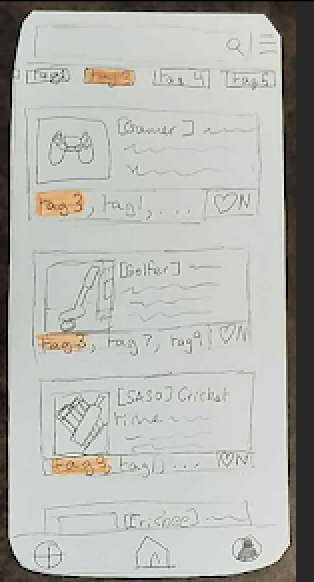 tag1 tag 3 tag 4 tag 5
[Gamer]
tag 3, tag1, ... ♡N
[Golfer]
tag 3, tag 7, tag 9 ♡N
[SASO] Cricket
Time
tag 3, tag1, ... ♡N
[Frisbee]